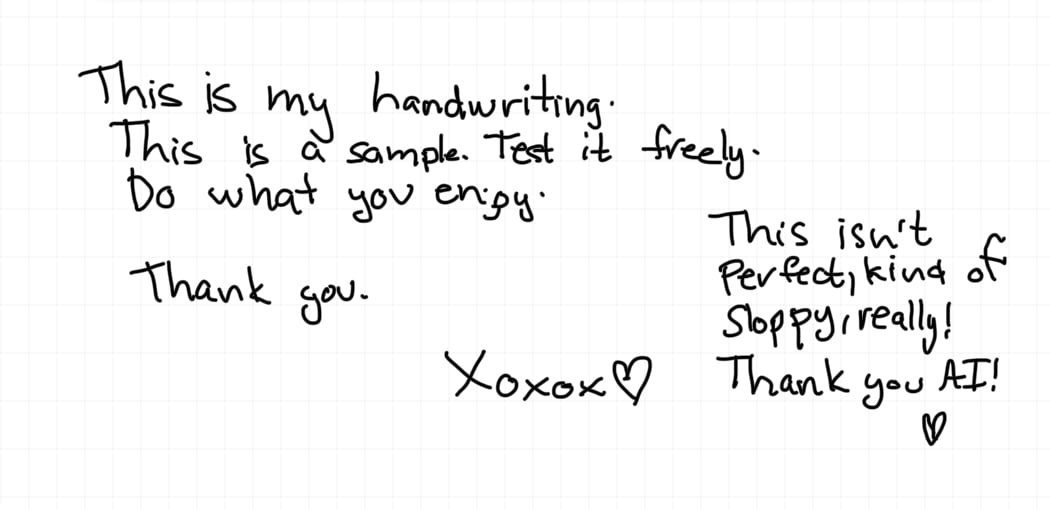 This is my handwriting.
This is a sample. Test it freely.
Do what you enjoy.
Thank you.
Xoxox♡
This isn't
Perfect, kind of
Sloppy, really!
Thank you AI!
♡